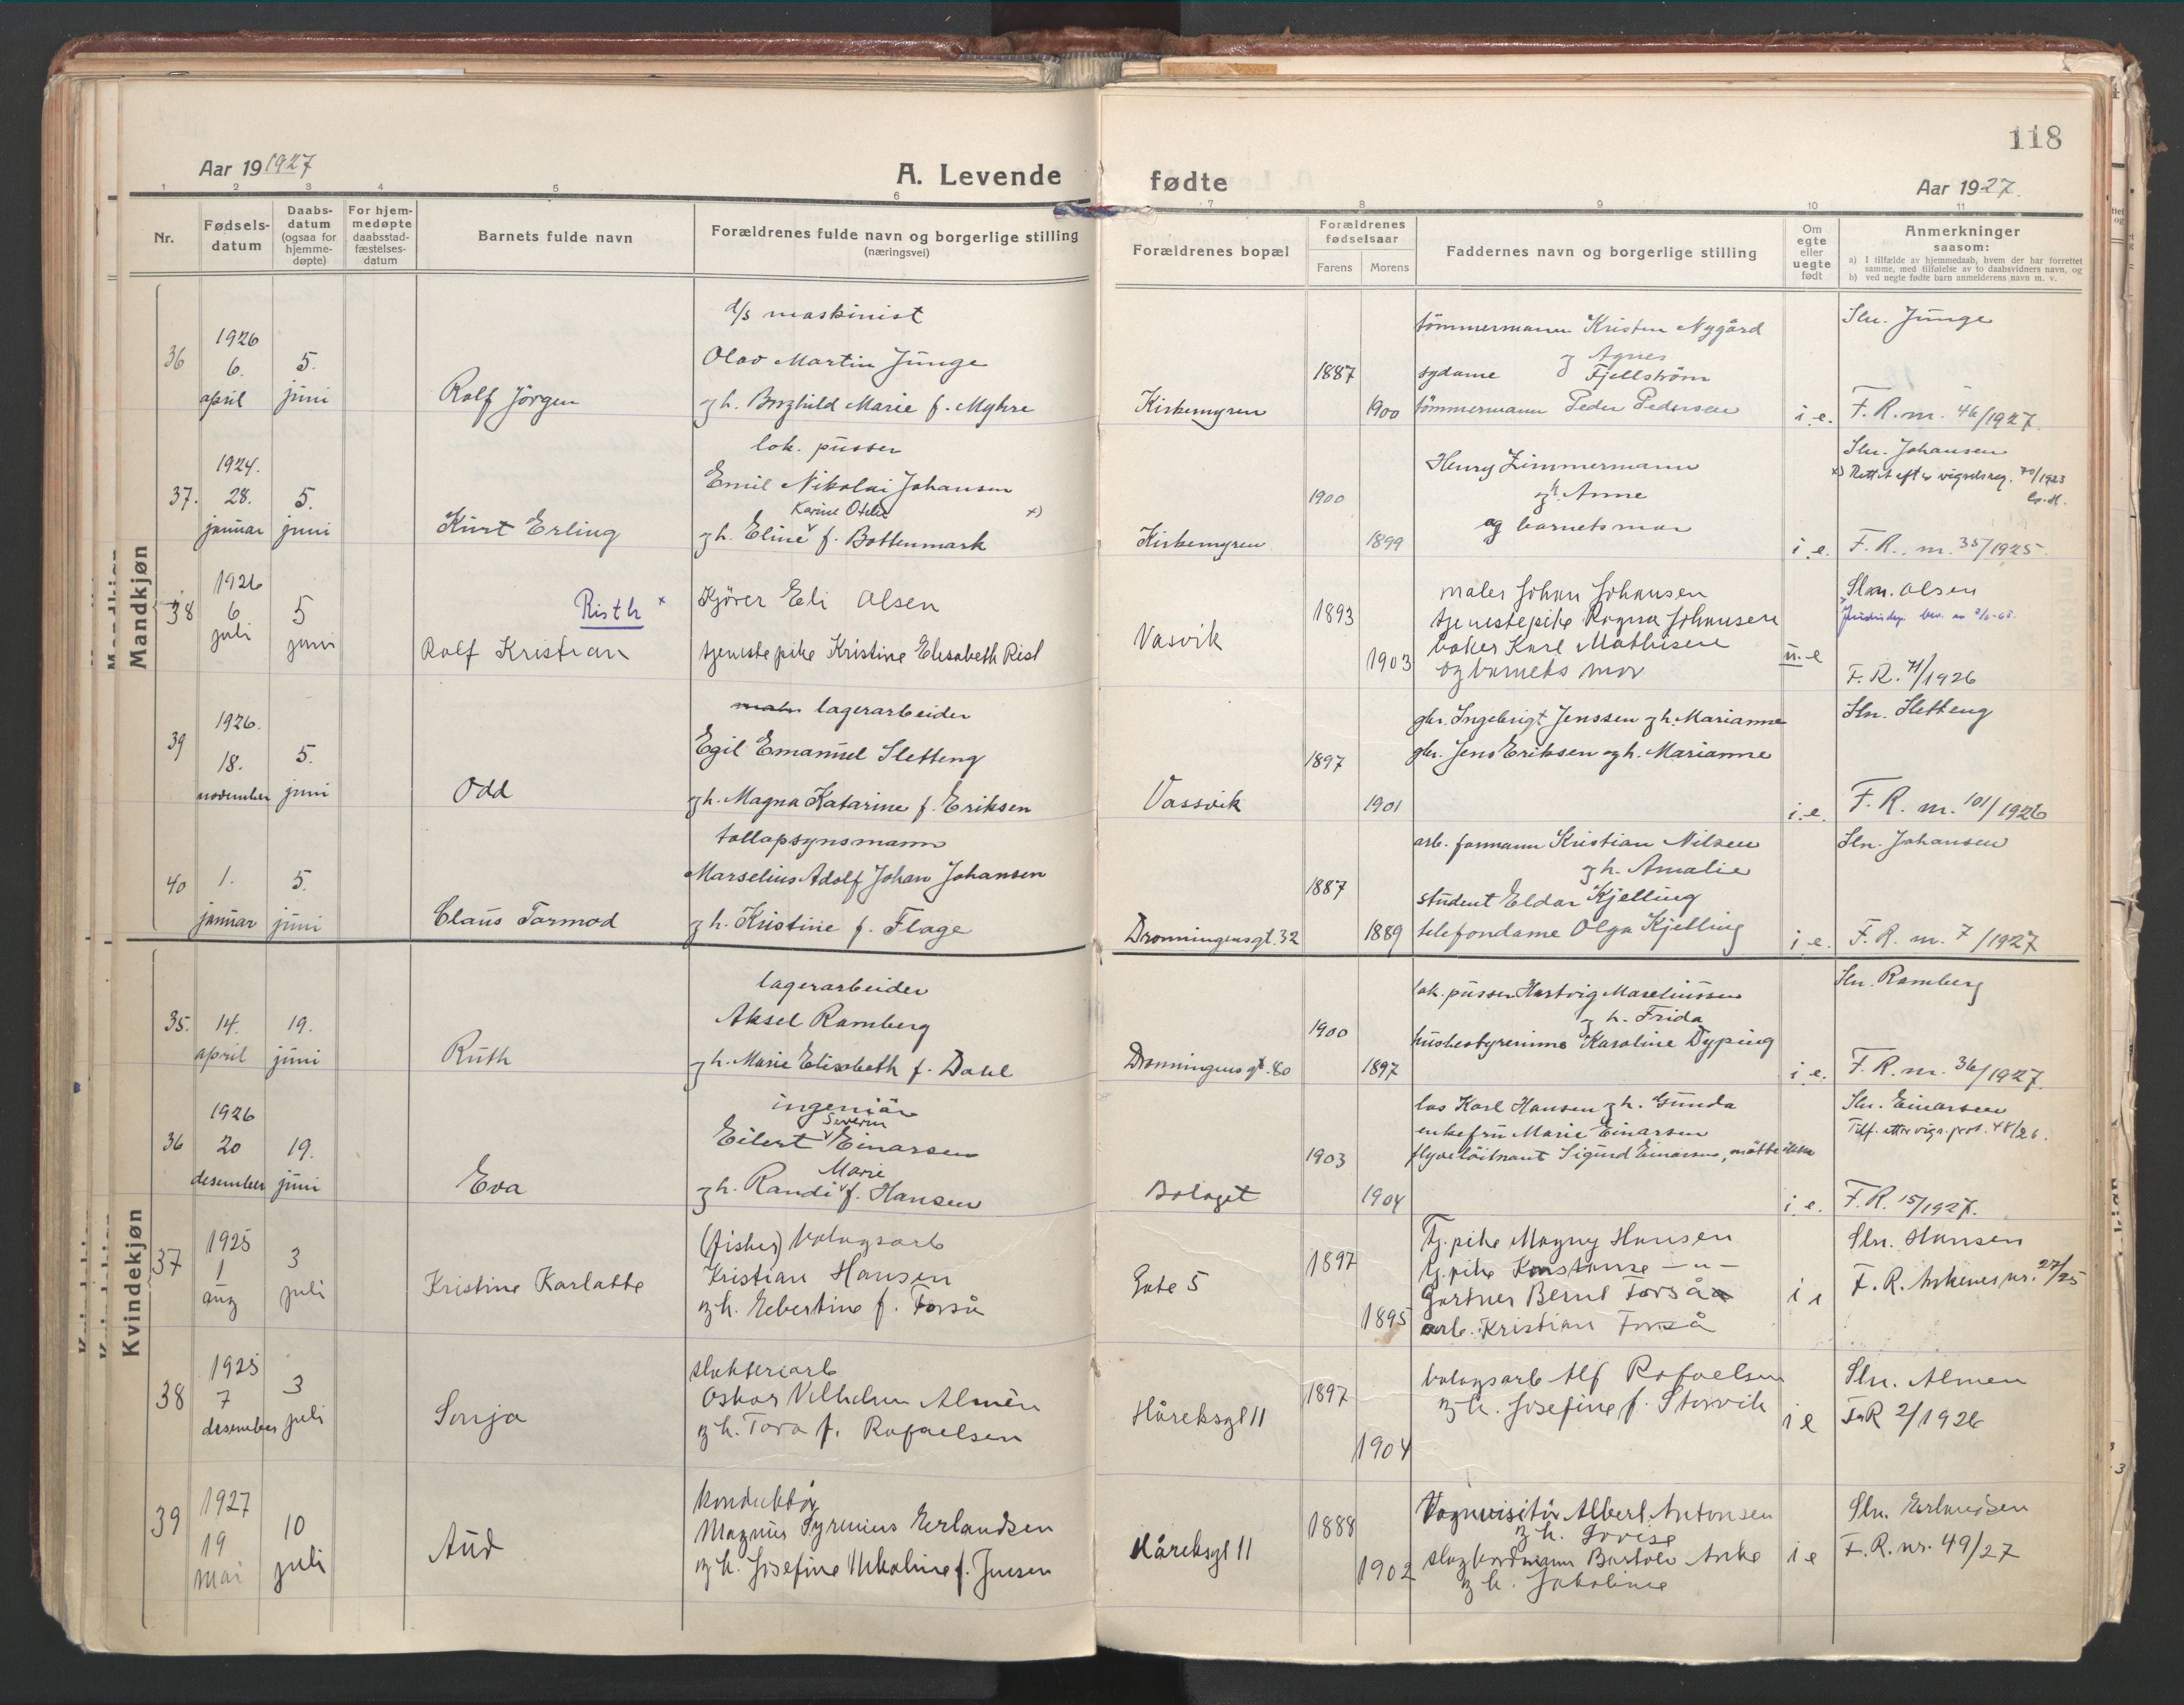 118
Aar 19 1927
A. Levende
fødte
Aar 1927.
1 2 3 4 5 6 7 8 9 10 11
Nr.
Fødsels-
datum
Daabs-
datum
(ogsaa for
hjemme-
døpte)
For hjem-
medøpte
daabsstad-
fæstelses-
datum
Barnets fulde navn
Forældrenes fulde navn og borgerlige stilling
(næringsvei)
Forældrenes bopæl
Forældrenes
fødselsaar
Farens Morens
Faddernes navn og borgerlige stilling
Om
egte
eller
uegte
født
Anmerkninger
saasom:
a) I tilfælde av hjemmedaab, hvem der har forrettet
samme, med tilføielse av to daabsvidners navn, og
b) ved uegte fødte barn anmelderens navn m. v.
Mandkjøn
36
1926
6.
april
5.
juni
Rolf Jörgen
d/s maskinist
Olav Martin Junge
og h. Borghild Marie f. Myhre
Kirkemyren
1887
1900
tömmermann Kristen Nygård
og Agnes
sydame Fjellström
tömmermann Peder Pedersen
i. e.
Sln. Junge
F. R. nr. 46/1927.
37.
1924.
28.
januar
5.
juni
Kurt Erling
lok. pusser
Emil Nikolai Johansen
Karine Otelie x)
og h. Eline f. Bottenmark
Kirkemyren
1900
1899
Henry Zimmermann
og h. Anne
og barnets mor
i. e.
Sln. Johansen
x) Rettet efter vigselsreg. 70/1923
F. R. nr. 35/1925.
38
1926
6
juli
5
juni
Risth x
Rolf Kristian
Kjører Eli Olsen
tjenestepike Kristine Elisabeth Rist
Vasvik
1893
1903
maler Johan Johansen
tjenestepike Ragna Johansen
baker Karl Mathisen
og barnets mor
u. e
Sln. Olsen
F. R. 71/1926
39
1926.
18.
november
5.
juni
Odd
lagerarbeider
Egil Emanuel Sletteng
og h. Magna Katarine f. Eriksen
Vassvik
1897
1901
gbr. Ingebrigt Jenssen og h. Marianne
gbr. Jens Eriksen og h. Marianne
i. e.
Sln. Sletteng
F. R. nr. 101/1926
40
1.
januar
5.
juni
Claus Tormod
tollopsynsmann
Marselius Adolf Johan Johansen
og h. Kristine f. Flage
Dronningensgt. 32
1887
1889
arb. formann Kristian Nilsen
og h. Amalie
student Eldar Kjelling
telefondame Olga Kjelling
i e.
Sln. Johansen
F. R. nr. 7/1927
Kvindekjøn
35.
14.
april
19.
juni
Ruth
lagerarbeider
Aksel Ramberg
og h. Marie Elisabeth f. Dahl
Dronningensgt. 80
1900
1897
lok. pusser Hartvig Maseliussen
og h. Frida
husbestyrerinne Karoline Dyping
i e.
Sln. Ramberg
F. R. nr. 36/1927.
36
1926
20
desember
19.
juni
Eva
ingeniör
Severin
Eilert Einarsen
Marie
og h. Randi f. Hansen
Bolaget
1903
1904
los Karl Hansen og h. Gunda
enkefru Marie Einarsen
flyveløitnant Sigurd Einarsen, møtte ikke
i. e.
Sln. Einarsen
Tilf. etter vigs. prot. 48/26.
F. R. 15/1927.
37
1925
1
aug
3
juli
Kristine Karlotte
(fisker) bolagsarb
Kristian Hansen
og h. Ebertine f. Forså
Gate 5
1897
1895
Tj. pike Magny Hansen
tj. pike Konstanse — " —
Gartner Bernt Forså
arb. Kristian Forså
i e
Sln. Hansen
F. R. Ankenes nr. 27/25
38
1925
7
desember
3
juli
Sonja
slakteriarb
Oskar Vilhelm Almèn
og h. Tora f. Rafaelsen
Håreksgt 11
1897
1904
bolagsarb Alf Rafaelsen
og h. Josefine f. Storvik
i e
Sln. Almen
F. R 2/1926
39
1927
19
mai
10
juli
Aud
Konduktör
Magnus Syrenius Erlandsen
og h. Josefine Nikoline f. Jensen
Håreksgt 11
1888
1902
Vognvisitör Albert Antonsen
og h. Lovise
og h. Jakobine
i e
Sln. Erlandsen
F. R. nr. 49/27